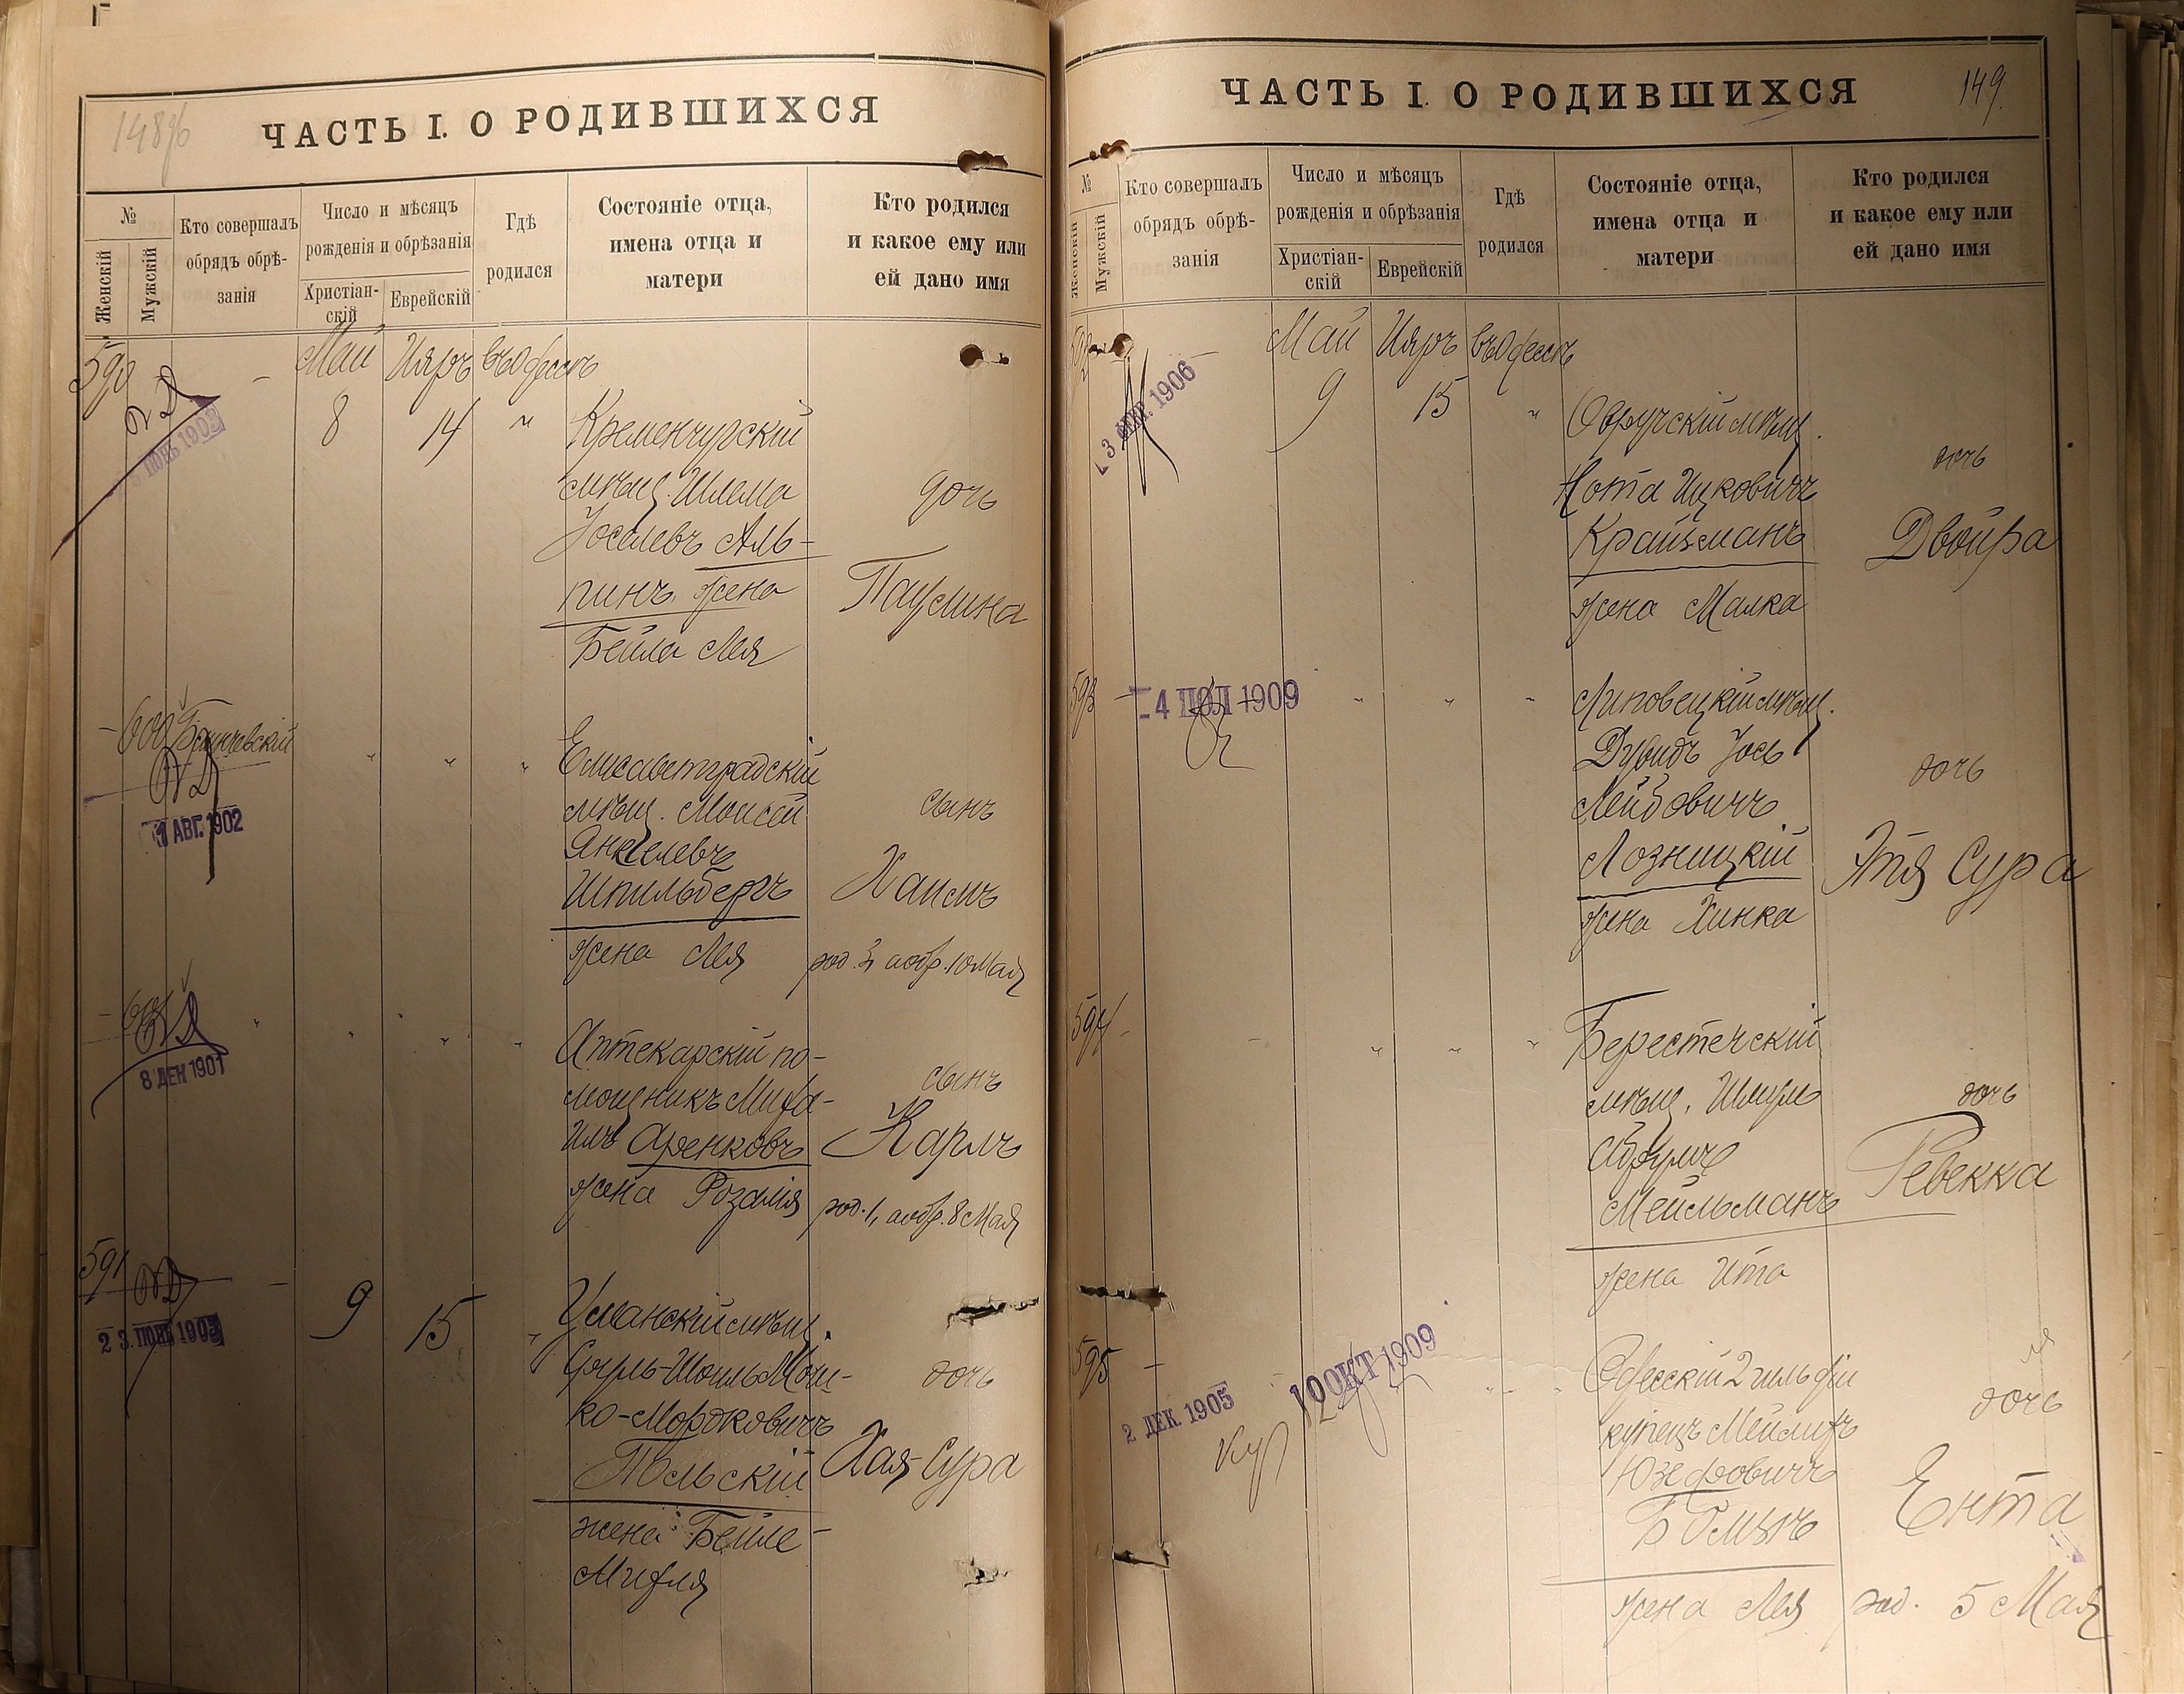 148 об
ЧАСТЬ I. О РОДИВШИХСЯ
№
Женскій
Мужскій
Кто совершалъ
обрядъ обрѣ-
занія
Число и мѣсяцъ
рожденія и обрѣзанія
Христіан-
скій
Еврейскій
Гдѣ
родился
Состояніе отца,
имена отца и
матери
Кто родился
и какое ему или
ей дано имя
590
Май Ияръ въ Одессѣ
8 14 "
Кременчугскій
мѣщ. Шлема
Іоселевъ Аль-
пинъ жена
Бейла Лея
дочь
Паулина
ІЮНЬ 1903
600
Елисаветградскій
мѣщ. Моисей
Янкелевъ
Шпильбергъ
жена Лея
сынъ
Хаимъ
род. 3, а обр. 10 Мая
1 АВГ. 1902
601
Аптекарскій по-
мощникъ Миха-
илъ Аренковъ
жена Розалія
сынъ
Карлъ
род. 1, а обр. 8 Мая
8 ДЕК 1901
591
9 15
Уманскій мѣщ.
Сруль-Шоиль Мош-
ко-Мордковичъ
Тольскій
жена Бейле-
Михля
дочь
Хая-Сура
2 3. ІЮНЬ 1903
149.
ЧАСТЬ I. О РОДИВШИХСЯ
№
Женскій
Мужскій
Кто совершалъ
обрядъ обрѣ-
занія
Число и мѣсяцъ
рожденія и обрѣзанія
Христіан-
скій
Еврейскій
Гдѣ
родился
Состояніе отца,
имена отца и
матери
Кто родился
и какое ему или
ей дано имя
592
Май Ияръ въ Одессѣ
9 15 "
Овручскій мѣщ.
Нота Ицковичъ
Крайзманъ
жена Малка
дочь
Двойра
1906
593
-4 ІЮЛ 1909
Липовецкій мѣщ.
Дувидъ Іось
Лейбовичъ
Лозницкій
жена Хинка
дочь
Этя Сура
594
Берестечскій
мѣщ. Шмуль
Абрумъ
Мейльманъ
жена Ита
дочь
Ревекка
595
2 ДЕК 1905
10 ОКТ 1909
Одесскій 2 гильдіи
купецъ Мейлихъ
Юзефовичъ
жена Лея
дочь
Ента
род. 5 Мая